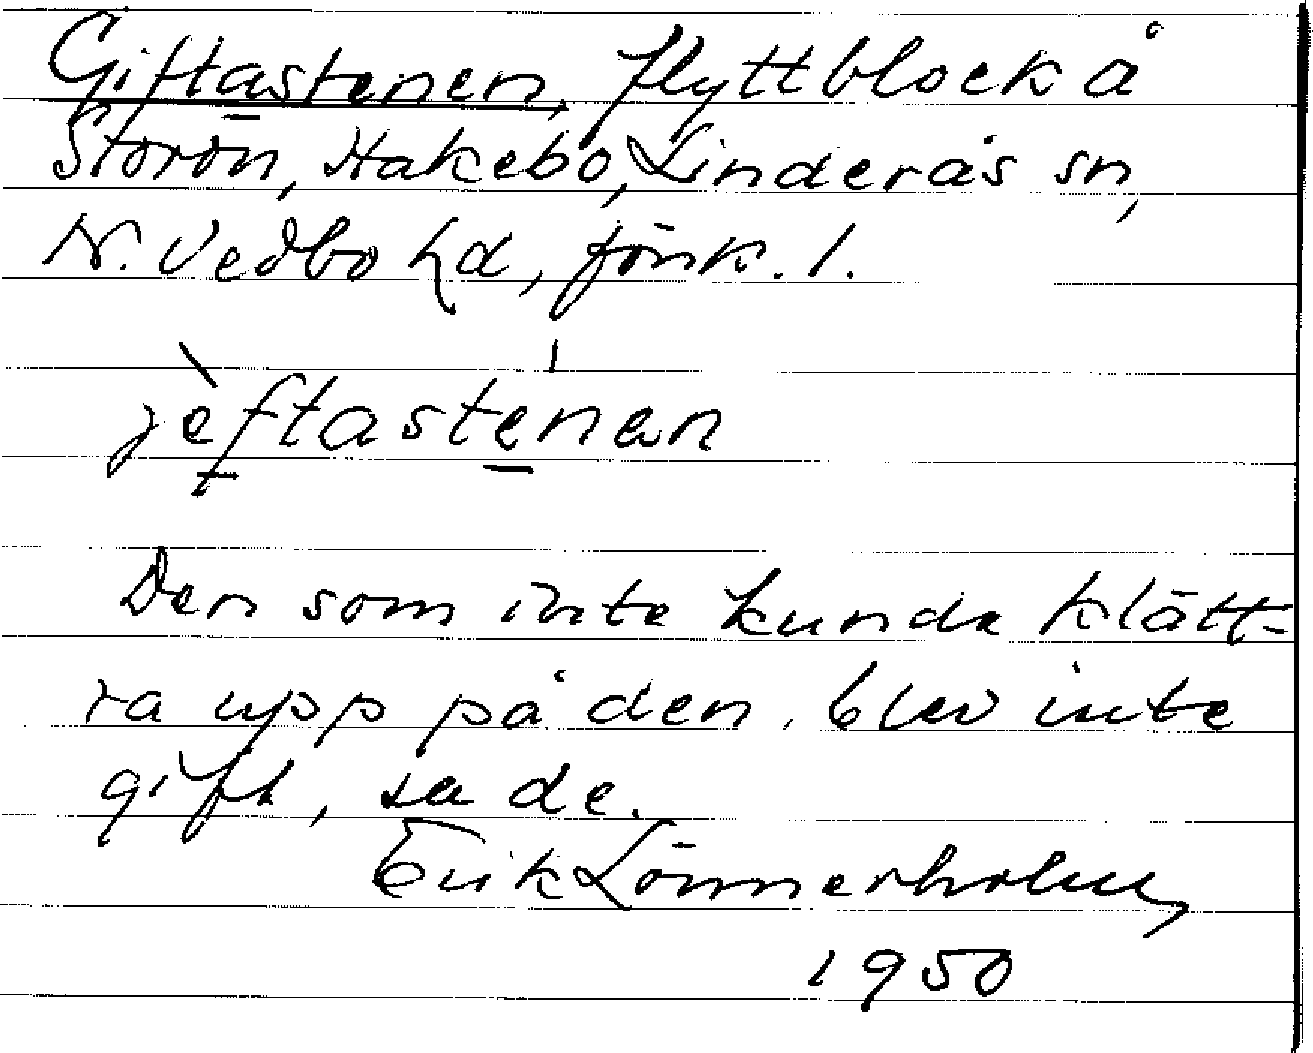 Giftastenen, flyttblock å
Storön, Hakebo, Linderås sn,
N. Vedbo hd, Jönk. l.
jèftasténen
Den som inte kunde klätt-
ra upp på den, blev inte
gift, sa de.
Erik Lönnerholm,
1950